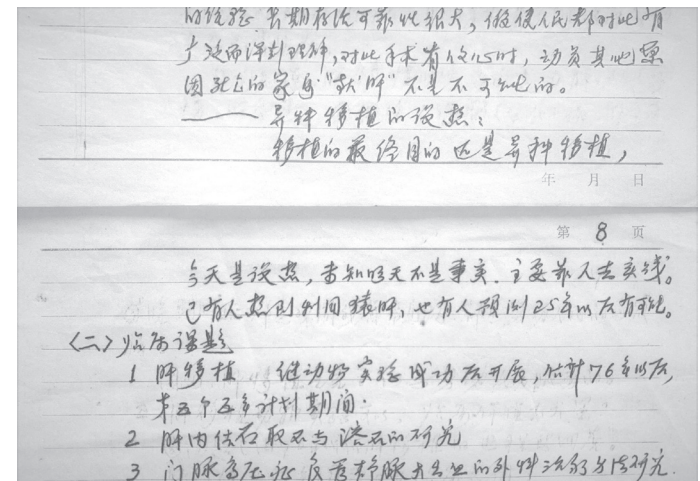 的经验，长期存活可靠性很大，假使人民都对此有
广泛而深刻理解，对此手术有信心时，动员其他原
因死亡的家属“献肝”不是不可能的。
—— 异种移植的设想：
移植的最终目的还是异种移植，
年 月 日
第 8 页
今天是设想，焉知明天不是事实，主要靠人去实践。
已有人想到利用猿肝，也有人预测25年以后有可能。
（二）临床课题
1 肝移植 继动物实验成功后开展，估计76年以后，
第五个五年计划期间.
2 肝内结石取石与溶石的研究
3 门脉高压症食管静脉大出血的外科治疗方法研究.